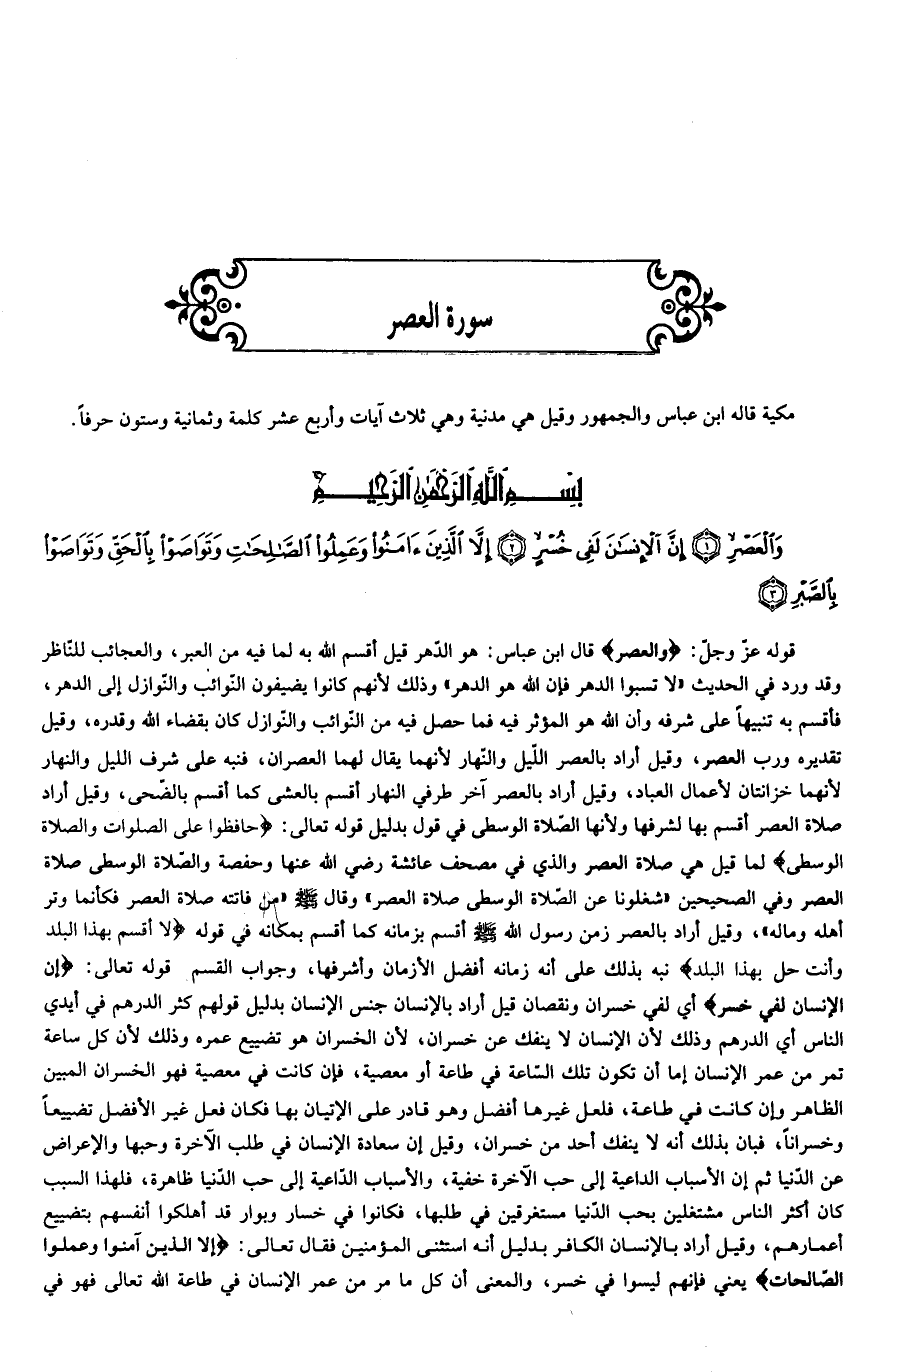 سورة العصر
مكية قاله ابن عباس والجمهور وقيل هي مدنية وهي ثلاث آيات وأربع عشر كلمة وثمانية وستون حرفاً.
بِسْمِ اللَّهِ الرَّحْمَٰنِ الرَّحِيمِ
وَٱلْعَصْرِ ١ إِنَّ ٱلْإِنسَٰنَ لَفِى خُسْرٍ ٢ إِلَّا ٱلَّذِينَ ءَامَنُوا۟ وَعَمِلُوا۟ ٱلصَّٰلِحَٰتِ وَتَوَاصَوْا۟ بِٱلْحَقِّ وَتَوَاصَوْا۟
بِٱلصَّبْرِ ٣
قوله عزّ وجلّ: ﴿والعصر﴾ قال ابن عباس: هو الدّهر قيل أقسم الله به لما فيه من العبر، والعجائب للنّاظر
وقد ورد في الحديث «لا تسبوا الدهر فإن الله هو الدهر» وذلك لأنهم كانوا يضيفون النّوائب والنّوازل إلى الدهر،
فأقسم به تنبيهاً على شرفه وأن الله هو المؤثر فيه فما حصل فيه من النّوائب والنّوازل كان بقضاء الله وقدره، وقيل
تقديره ورب العصر، وقيل أراد بالعصر اللّيل والنّهار لأنهما يقال لهما العصران، فنبه على شرف الليل والنهار
لأنهما خزانتان لأعمال العباد، وقيل أراد بالعصر آخر طرفي النهار أقسم بالعشى كما أقسم بالضّحى، وقيل أراد
صلاة العصر أقسم بها لشرفها ولأنها الصّلاة الوسطى في قول بدليل قوله تعالى: ﴿حافظوا على الصلوات والصلاة
الوسطى﴾ لما قيل هي صلاة العصر والذي في مصحف عائشة رضي الله عنها وحفصة والصّلاة الوسطى صلاة
العصر وفي الصحيحين «شغلونا عن الصّلاة الوسطى صلاة العصر» وقال ﷺ «من فاتته صلاة العصر فكأنما وتر
أهله وماله»، وقيل أراد بالعصر زمن رسول الله ﷺ أقسم بزمانه كما أقسم بمكانه في قوله ﴿لا أقسم بهذا البلد
وأنت حل بهذا البلد﴾ نبه بذلك على أنه زمانه أفضل الأزمان وأشرفها، وجواب القسم قوله تعالى: ﴿إن
الإنسان لفي خسر﴾ أي لفي خسران ونقصان قيل أراد بالإنسان جنس الإنسان بدليل قولهم كثر الدرهم في أيدي
الناس أي الدرهم وذلك لأن الإنسان لا ينفك عن خسران، لأن الخسران هو تضييع عمره وذلك لأن كل ساعة
تمر من عمر الإنسان إما أن تكون تلك السّاعة في طاعة أو معصية، فإن كانت في معصية فهو الخسران المبين
الظاهر وإن كانت في طاعة، فلعل غيرها أفضل وهو قادر على الإتيان بها فكان فعل غير الأفضل تضييعاً
وخسراناً، فبان بذلك أنه لا ينفك أحد من خسران، وقيل إن سعادة الإنسان في طلب الآخرة وحبها والإعراض
عن الدّنيا ثم إن الأسباب الداعية إلى حب الآخرة خفية، والأسباب الدّاعية إلى حب الدّنيا ظاهرة، فلهذا السبب
كان أكثر الناس مشتغلين بحب الدّنيا مستغرقين في طلبها، فكانوا في خسار وبوار قد أهلكوا أنفسهم بتضييع
أعمارهم، وقيل أراد بالإنسان الكافر بدليل أنه استثنى المؤمنين فقال تعالى: ﴿إلا الذين آمنوا وعملوا
الصّالحات﴾ يعني فإنهم ليسوا في خسر، والمعنى أن كل ما مر من عمر الإنسان في طاعة الله تعالى فهو في